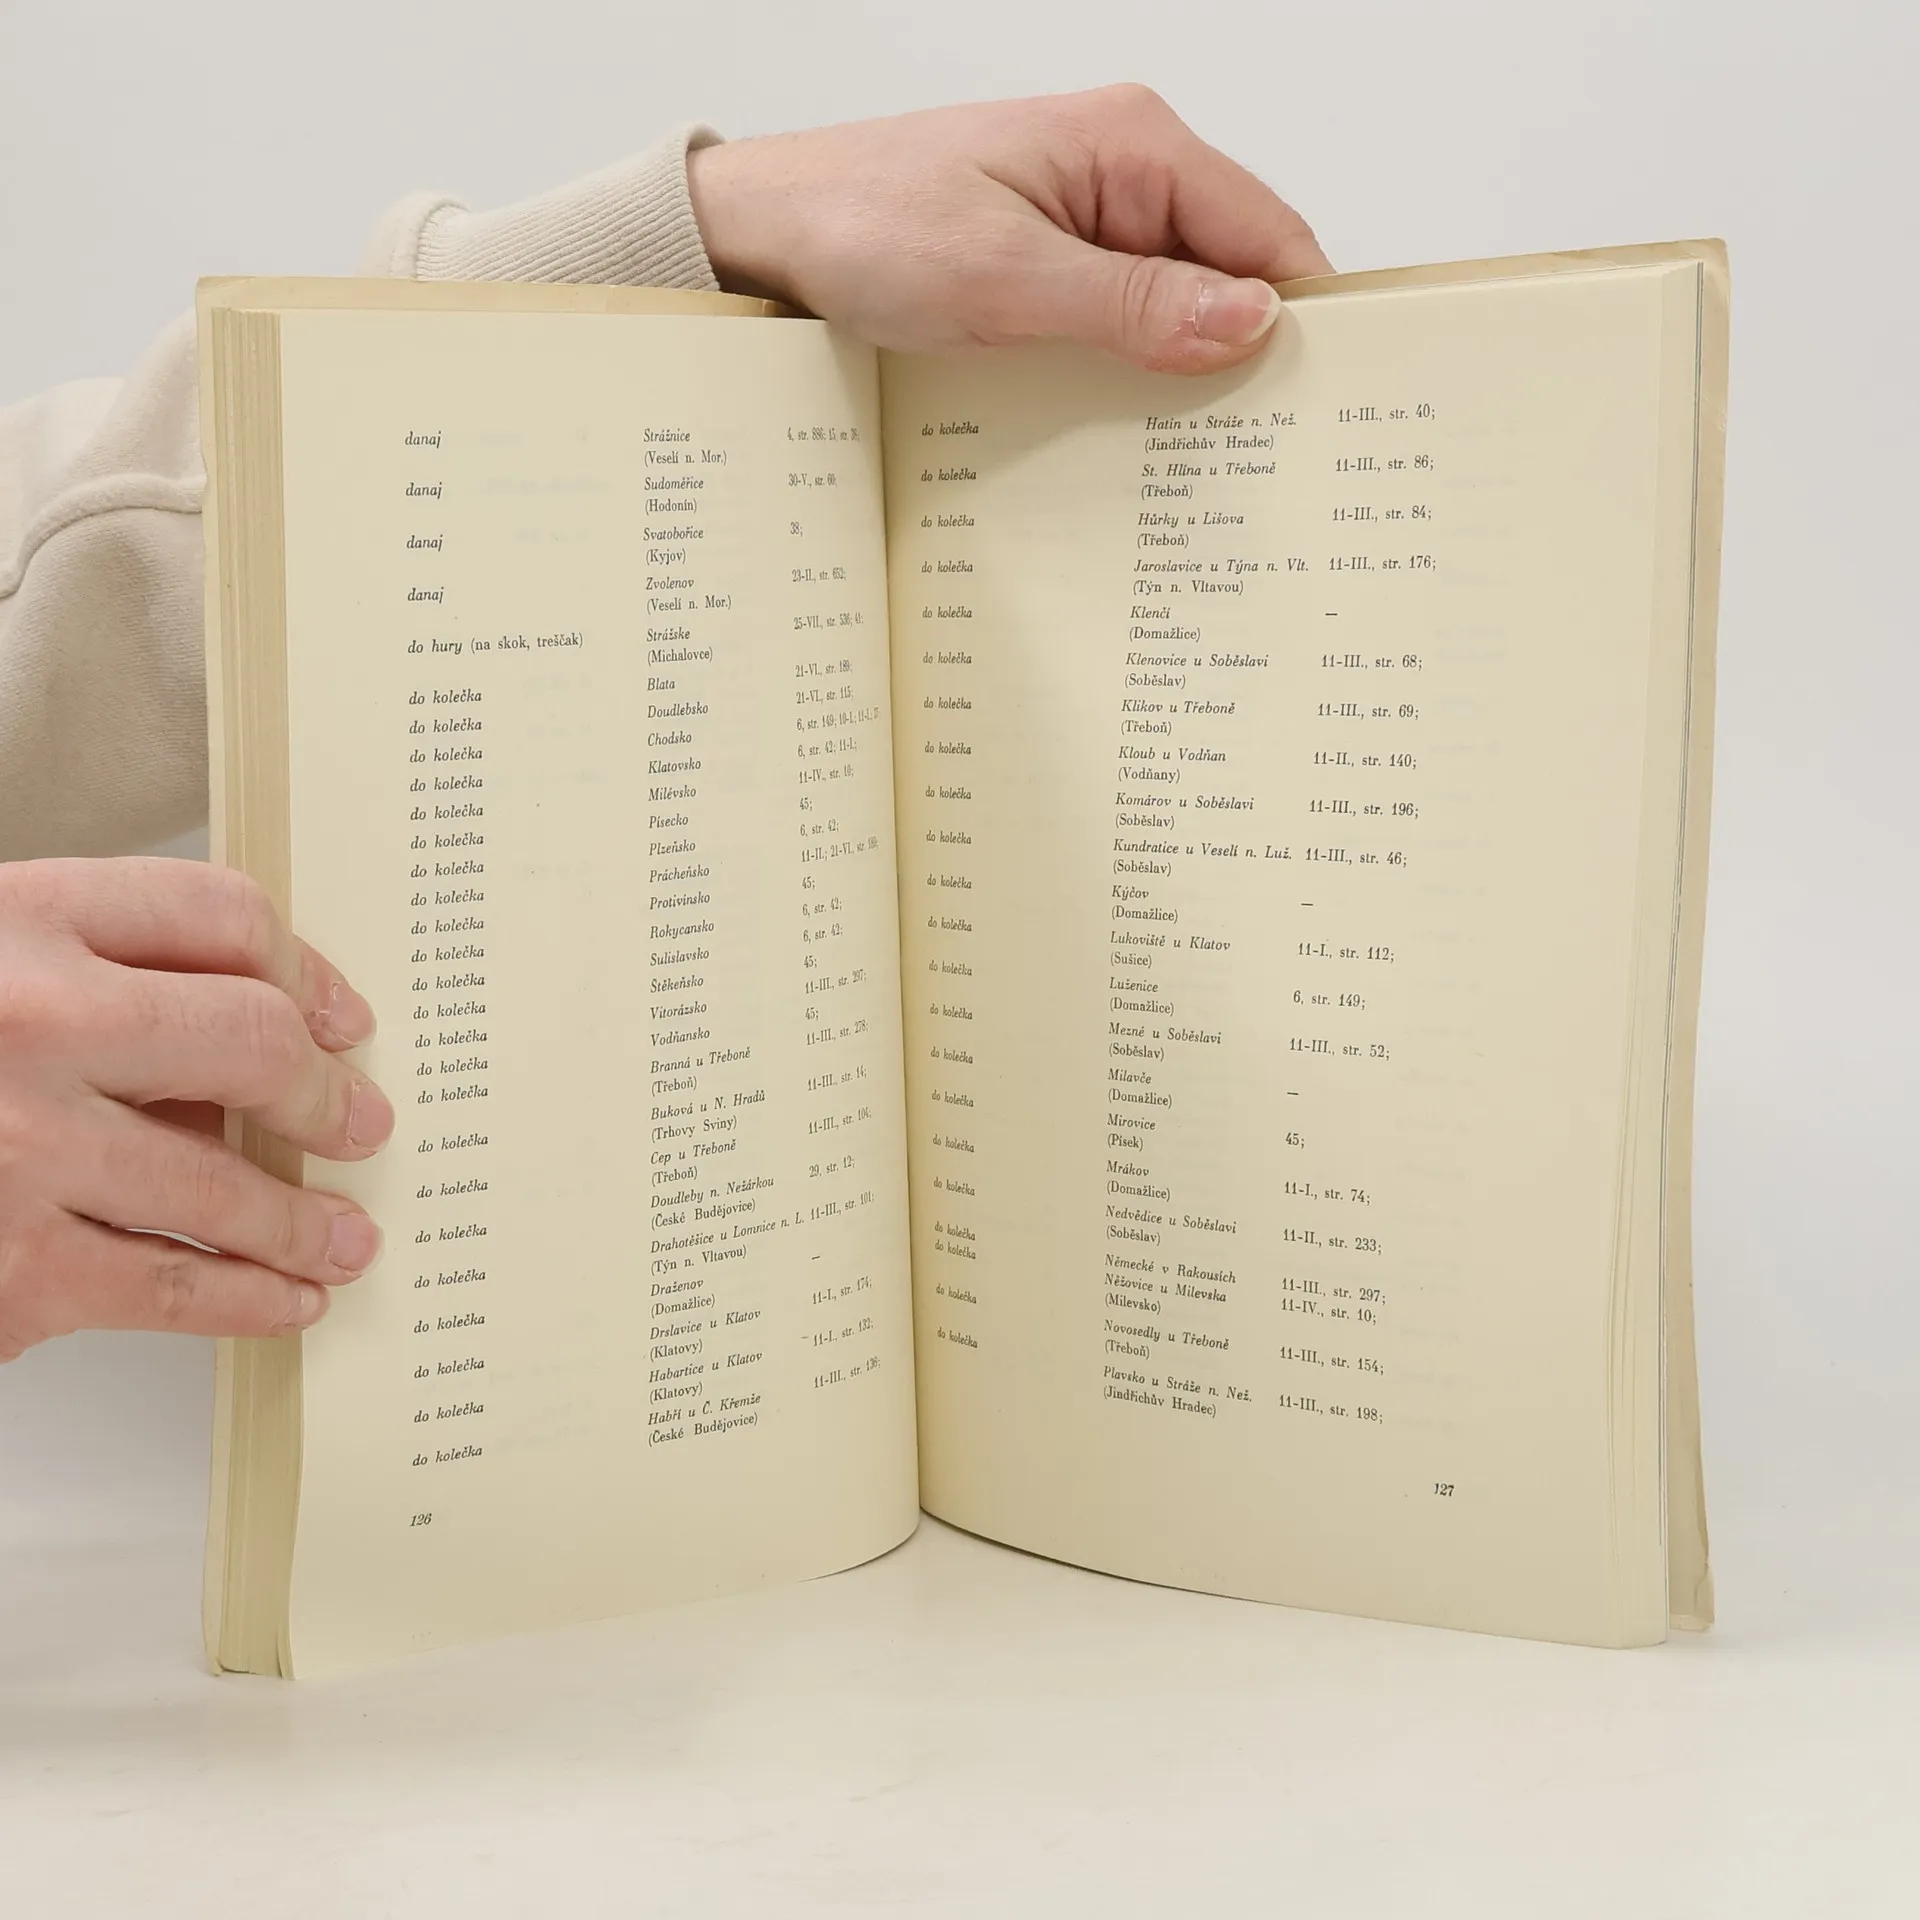 danaj Strážnice 4, str. 886; 15, str. 38;
(Veselí n. Mor.)
danaj Sudoměřice 30-V., str. 60;
(Hodonín)
danaj Svatobořice 38;
(Kyjov)
danaj Zvolenov 23-II., str. 652;
(Veselí n. Mor.)
do hury (na skok, treščak) Strážske 25-VII., str. 536; 41;
(Michalovce)
do kolečka Blata 21-VI., str. 189;
do kolečka Doudlebsko 21-VI., str. 115;
do kolečka Chodsko 6, str. 149; 10-I.; 11-I.; 37
do kolečka Klatovsko 6, str. 42; 11-I.;
do kolečka Milévsko 11-IV., str. 10;
do kolečka Písecko 45;
do kolečka Plzeňsko 6, str. 42;
do kolečka Prácheňsko 11-II.; 21-VI., str. 189;
do kolečka Protivínsko 45;
do kolečka Rokycansko 6, str. 42;
do kolečka Sulislavsko 6, str. 42;
do kolečka Štěkeňsko 45;
do kolečka Vitorázsko 11-III., str. 297;
do kolečka Vodňansko 45;
do kolečka Branná u Třeboně 11-III., str. 278;
(Třeboň)
do kolečka Buková u N. Hradů 11-III., str. 14;
(Trhovy Sviny)
do kolečka Cep u Třeboně 11-III., str. 104;
(Třeboň)
do kolečka Doudleby n. Nežárkou 29, str. 12;
(České Budějovice)
do kolečka Drahotěšice u Lomnice n. L. 11-III., str. 101;
(Týn n. Vltavou)
do kolečka Draženov —
(Domažlice)
do kolečka Drslavice u Klatov 11-I., str. 174;
(Klatovy)
do kolečka Habartice u Klatov 11-I., str. 132;
(Klatovy)
do kolečka Habří u Č. Křemže 11-III., str. 136;
(České Budějovice)
126
do kolečka Hatín u Stráže n. Než. 11-III., str. 40;
(Jindřichův Hradec)
do kolečka St. Hlína u Třeboně 11-III., str. 86;
(Třeboň)
do kolečka Hůrky u Lišova 11-III., str. 84;
(Třeboň)
do kolečka Jaroslavice u Týna n. Vlt. 11-III., str. 176;
(Týn n. Vltavou)
do kolečka Klenčí —
(Domažlice)
do kolečka Klenovice u Soběslavi 11-III., str. 68;
(Soběslav)
do kolečka Klikov u Třeboně 11-III., str. 69;
(Třeboň)
do kolečka Kloub u Vodňan 11-II., str. 140;
(Vodňany)
do kolečka Komárov u Soběslavi 11-III., str. 196;
(Soběslav)
do kolečka Kundratice u Veselí n. Luž. 11-III., str. 46;
(Soběslav)
do kolečka Kýčov —
(Domažlice)
do kolečka Lukoviště u Klatov 11-I., str. 112;
(Sušice)
do kolečka Luženice 6, str. 149;
(Domažlice)
do kolečka Mezné u Soběslavi 11-III., str. 52;
(Soběslav)
do kolečka Milavče —
(Domažlice)
do kolečka Mirovice 45;
(Písek)
do kolečka Mrákov 11-I., str. 74;
(Domažlice)
do kolečka Nedvědice u Soběslavi 11-II., str. 233;
(Soběslav)
do kolečka Německé v Rakousích 11-III., str. 297;
do kolečka Něžovice u Milevska 11-IV., str. 10;
(Milevsko)
do kolečka Novosedly u Třeboně 11-III., str. 154;
(Třeboň)
do kolečka Plavsko u Stráže n. Než. 11-III., str. 198;
(Jindřichův Hradec)
127